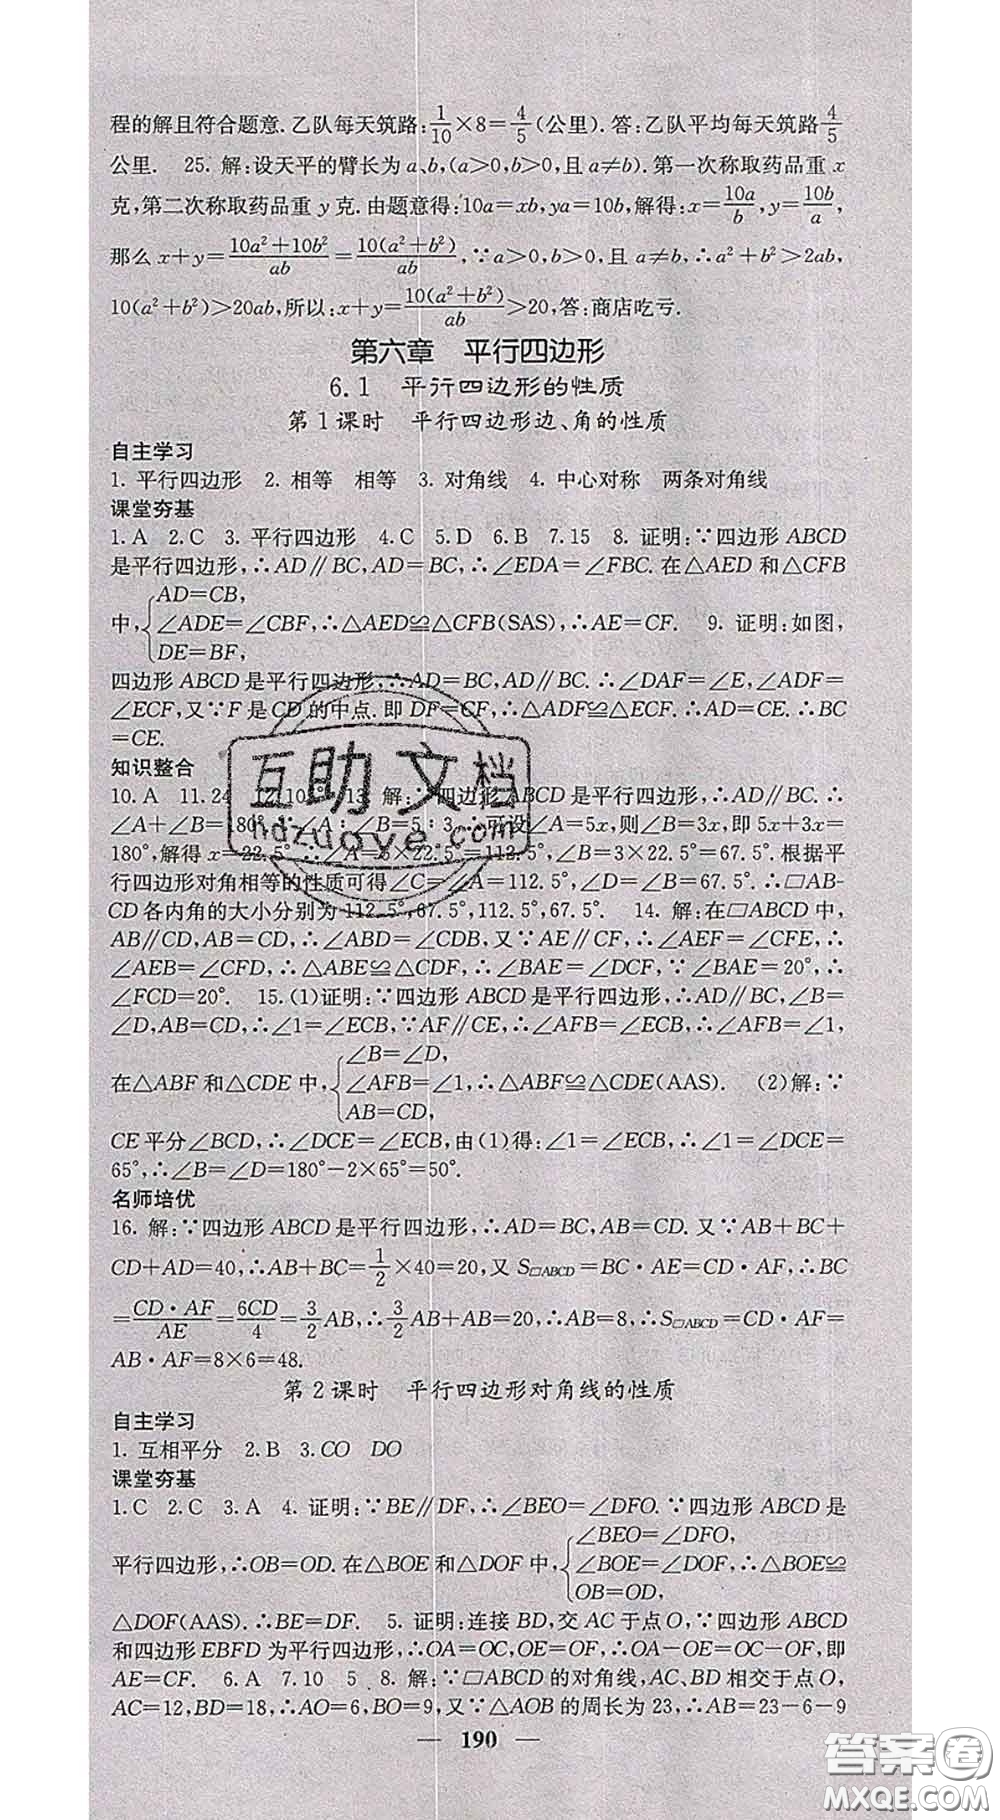 程的解且符合题意.乙队每天筑路:1/10×8=4/5(公里).答:乙队平均每天筑路4/5
公里. 25. 解:设天平的臂长为a、b,(a>0,b>0,且a≠b).第一次称取药品重x
克,第二次称取药品重y克.由题意得:10a=xb,ya=10b,解得:x=10a/b,y=10b/a,
那么x+y=(10a²+10b²)/ab=10(a²+b²)/ab,∵a>0,b>0,且a≠b,∴a²+b²>2ab,
10(a²+b²)>20ab,所以:x+y=10(a²+b²)/ab>20,答:商店吃亏.
第六章 平行四边形
6.1 平行四边形的性质
第1课时 平行四边形边、角的性质
自主学习
1. 平行四边形 2. 相等 相等 3. 对角线 4. 中心对称 两条对角线
课堂夯基
1. A 2. C 3. 平行四边形 4. C 5. D 6. B 7. 15 8. 证明:∵四边形ABCD
是平行四边形,∴AD∥BC,AD=BC,∴∠EDA=∠FBC.在△AED和△CFB
中,{AD=CB,
∠ADE=∠CBF,∴△AED≌△CFB(SAS),∴AE=CF. 9. 证明:如图,
DE=BF,
四边形ABCD是平行四边形,∴AD=BC,AD∥BC.∴∠DAF=∠E,∠ADF=
∠ECF,又∵F是CD的中点.即DF=CF,∴△ADF≌△ECF.∴AD=CE.∴BC
=CE.
知识整合
10. A 11. 24 12. 10 13. 解:∵四边形ABCD是平行四边形,∴AD∥BC.∴
∠A+∠B=180°.∵∠A∶∠B=5∶3,∴可设∠A=5x,则∠B=3x,即5x+3x=
180°,解得x=22.5°.∴∠A=5×22.5°=112.5°,∠B=3×22.5°=67.5°.根据平
行四边形对角相等的性质可得∠C=∠A=112.5°,∠D=∠B=67.5°.∴□AB-
CD各内角的大小分别为112.5°,67.5°,112.5°,67.5°. 14. 解:在□ABCD中,
AB∥CD,AB=CD,∴∠ABD=∠CDB,又∵AE∥CF,∴∠AEF=∠CFE,∴
∠AEB=∠CFD,∴△ABE≌△CDF,∴∠BAE=∠DCF,∵∠BAE=20°,∴
∠FCD=20°. 15. (1)证明:∵四边形ABCD是平行四边形,∴AD∥BC,∠B=
∠D,AB=CD,∴∠1=∠ECB,∵AF∥CE,∴∠AFB=∠ECB,∴∠AFB=∠1,
在△ABF和△CDE中,{∠B=∠D,
∠AFB=∠1,∴△ABF≌△CDE(AAS). (2)解:∵
AB=CD,
CE平分∠BCD,∴∠DCE=∠ECB,由(1)得:∠1=∠ECB,∴∠1=∠DCE=
65°,∴∠B=∠D=180°-2×65°=50°.
名师培优
16. 解:∵四边形ABCD是平行四边形,∴AD=BC,AB=CD.又∵AB+BC+
CD+AD=40,∴AB+BC=1/2×40=20,又S□ABCD=BC·AE=CD·AF,∴BC
=CD·AF/AE=6CD/4=3/2AB,∴3/2AB+AB=20,∴AB=8,∴S□ABCD=CD·AF=
AB·AF=8×6=48.
第2课时 平行四边形对角线的性质
自主学习
1. 互相平分 2. B 3. CO DO
课堂夯基
1. C 2. C 3. A 4. 证明:∵BE∥DF,∴∠BEO=∠DFO.∵四边形ABCD是
平行四边形,∴OB=OD.在△BOE和△DOF中,{∠BEO=∠DFO,
∠BOE=∠DOF,∴△BOE≌
OB=OD,
△DOF(AAS).∴BE=DF. 5. 证明:连接BD,交AC于点O,∵四边形ABCD
和四边形EBFD为平行四边形,∴OA=OC,OE=OF,∴OA-OE=OC-OF,即
AE=CF. 6. A 7. 10 5 8. 解:∵□ABCD的对角线,AC、BD相交于点O,
AC=12,BD=18,∴AO=6,BO=9,又∵△AOB的周长为23,∴AB=23-6-9
190
互助文档
hdzuoye.com
答案圈
MXQE.COM